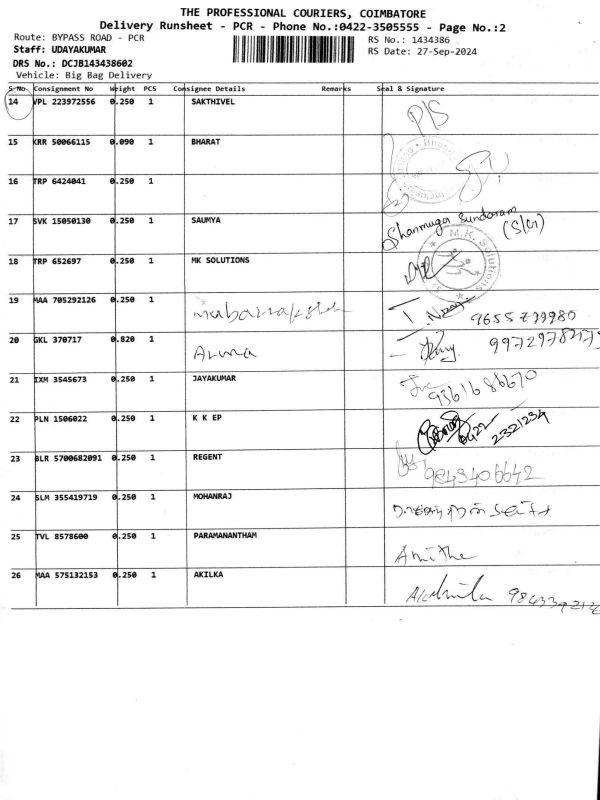 THE PROFESSIONAL COURIERS, COIMBATORE
Delivery Runsheet - PCR - Phone No.:0422-3505555 - Page No.:2
Route: BYPASS ROAD - PCR
RS No.: 1434386
Staff: UDAYAKUMAR
RS Date: 27-Sep-2024
DRS No.: DCJB143438602
Vehicle: Big Bag Delivery
S.No Consignment No Weight PCS Consignee Details Remarks Seal & Signature
14 VPL 223972556 0.250 1 SAKTHIVEL
P/S
15 KRR 50066115 0.090 1 BHARAT
16 TRP 6424041 0.250 1
17 SVK 15050130 0.250 1 SAUMYA
Shanmuga Sundaram
18 TRP 652697 0.250 1 MK SOLUTIONS
M.K. Solutions
19 MAA 705292126 0.250 1
9655299980
20 GKL 370717 0.820 1 Aruna
21 IXM 3545673 0.250 1 JAYAKUMAR
9361686670
22 PLN 1506022 0.250 1 K K EP
0422 2321234
23 BLR 5700682091 0.250 1 REGENT
9843406642
24 SLM 355419719 0.250 1 MOHANRAJ
25 TVL 8578600 0.250 1 PARAMANANTHAM
Anitha
26 MAA 575132153 0.250 1 AKILKA